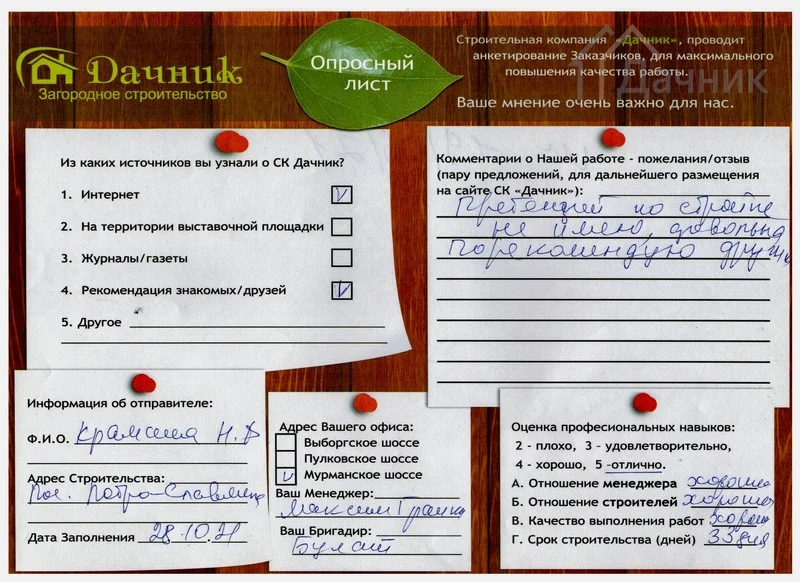 Дачник
Загородное строительство
Опросный
лист
Строительная компания «Дачник», проводит
анкетирование Заказчиков, для максимального
повышения качества работы.
Дачник
Ваше мнение очень важно для нас.
Из каких источников вы узнали о СК Дачник?
1. Интернет V
2. На территории выставочной площадки
3. Журналы/газеты
4. Рекомендация знакомых/друзей V
5. Другое
Комментарии о Нашей работе - пожелания/отзыв
(пару предложений, для дальнейшего размещения
на сайте СК «Дачник»):
Претензий по стройке
не имею, довольна
Порекомендую другим
Информация об отправителе:
Ф.И.О.
Адрес Строительства:
Пос. Петро-Славянка
Дата Заполнения 28.10.21
Адрес Вашего офиса:
Выборгское шоссе
Пулковское шоссе
V Мурманское шоссе
Ваш Менеджер:
Максим
Ваш Бригадир:
Булат
Оценка профессиональных навыков:
2 - плохо, 3 - удовлетворительно,
4 - хорошо, 5 -отлично.
А. Отношение менеджера хорошее
Б. Отношение строителей хорошо
В. Качество выполнения работ хорош
Г. Срок строительства (дней) 33 дня